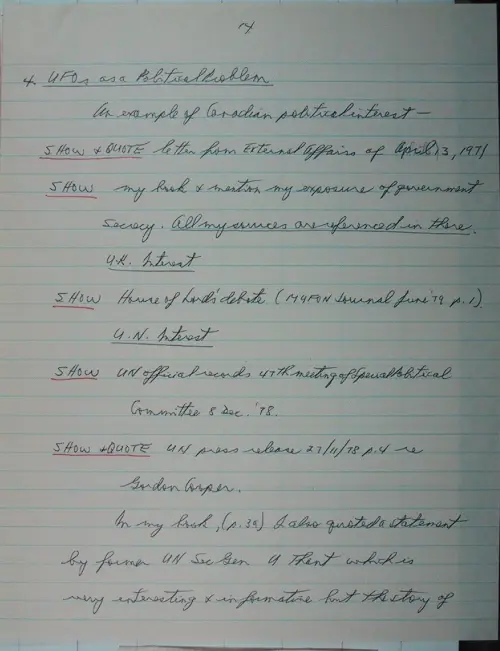 4. UFOs as a Political Problem
An example of Canadian political interest —
SHOW & QUOTE letter from External Affairs of April 13, 1971
SHOW my book & mention my exposure of government
secrecy. All my sources are referenced in there.
U.K. Interest
SHOW House of Lords debate (MUFON Journal June '79 p.1).
U.N. Interest
SHOW UN official records 47th meeting of Special Political
Committee 8 Dec. '78.
SHOW & QUOTE UN press release 27/11/78 p.4 re
Gordon Cooper.
In my book, (p. 39) I also quoted a statement
by former UN Sec Gen U Thant which is
very interesting & informative but the story of